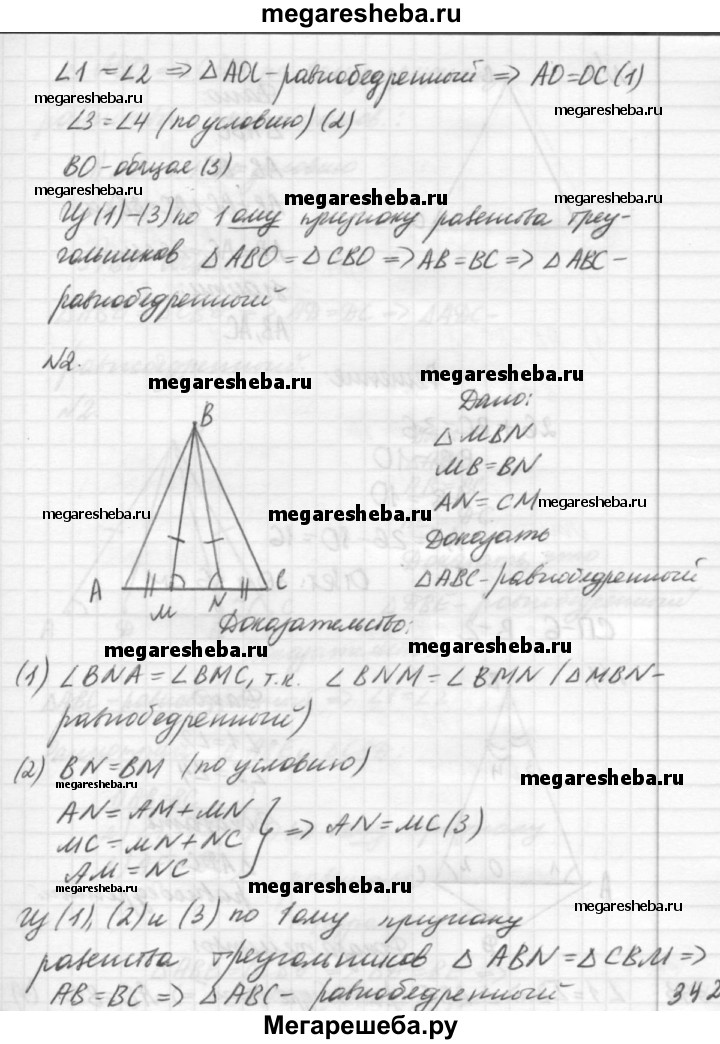 megaresheba.ru
∠1 = ∠2 => △AOC - равнобедренный => AO=OC (1)
megaresheba.ru megaresheba.ru
∠3 = ∠4 (по условию) (2)
BO - общая (3)
megaresheba.ru megaresheba.ru
Из (1)-(3) по 1ому признаку равенства треу-
гольников △ABO = △CBO => AB = BC => △ABC -
равнобедренный
N2.
megaresheba.ru megaresheba.ru
Дано:
B
△MBN
MB = BN
AN = CM megaresheba.ru
megaresheba.ru megaresheba.ru
Доказать
△ABC - равнобедренный
A M N C
Доказательство:
megaresheba.ru megaresheba.ru
(1) ∠BNA = ∠BMC, т.к. ∠BNM = ∠BMN (△MBN -
равнобедренный)
(2) BN = BM (по условию)
megaresheba.ru megaresheba.ru
AN = AM + MN
MC = MN + NC => AN = MC (3)
AM = NC
megaresheba.ru megaresheba.ru megaresheba.ru
Из (1), (2) и (3) по 1ому признаку
равенства треугольников △ABN = △CBM =>
AB = BC => △ABC - равнобедренный 342
Мегарешеба.ру